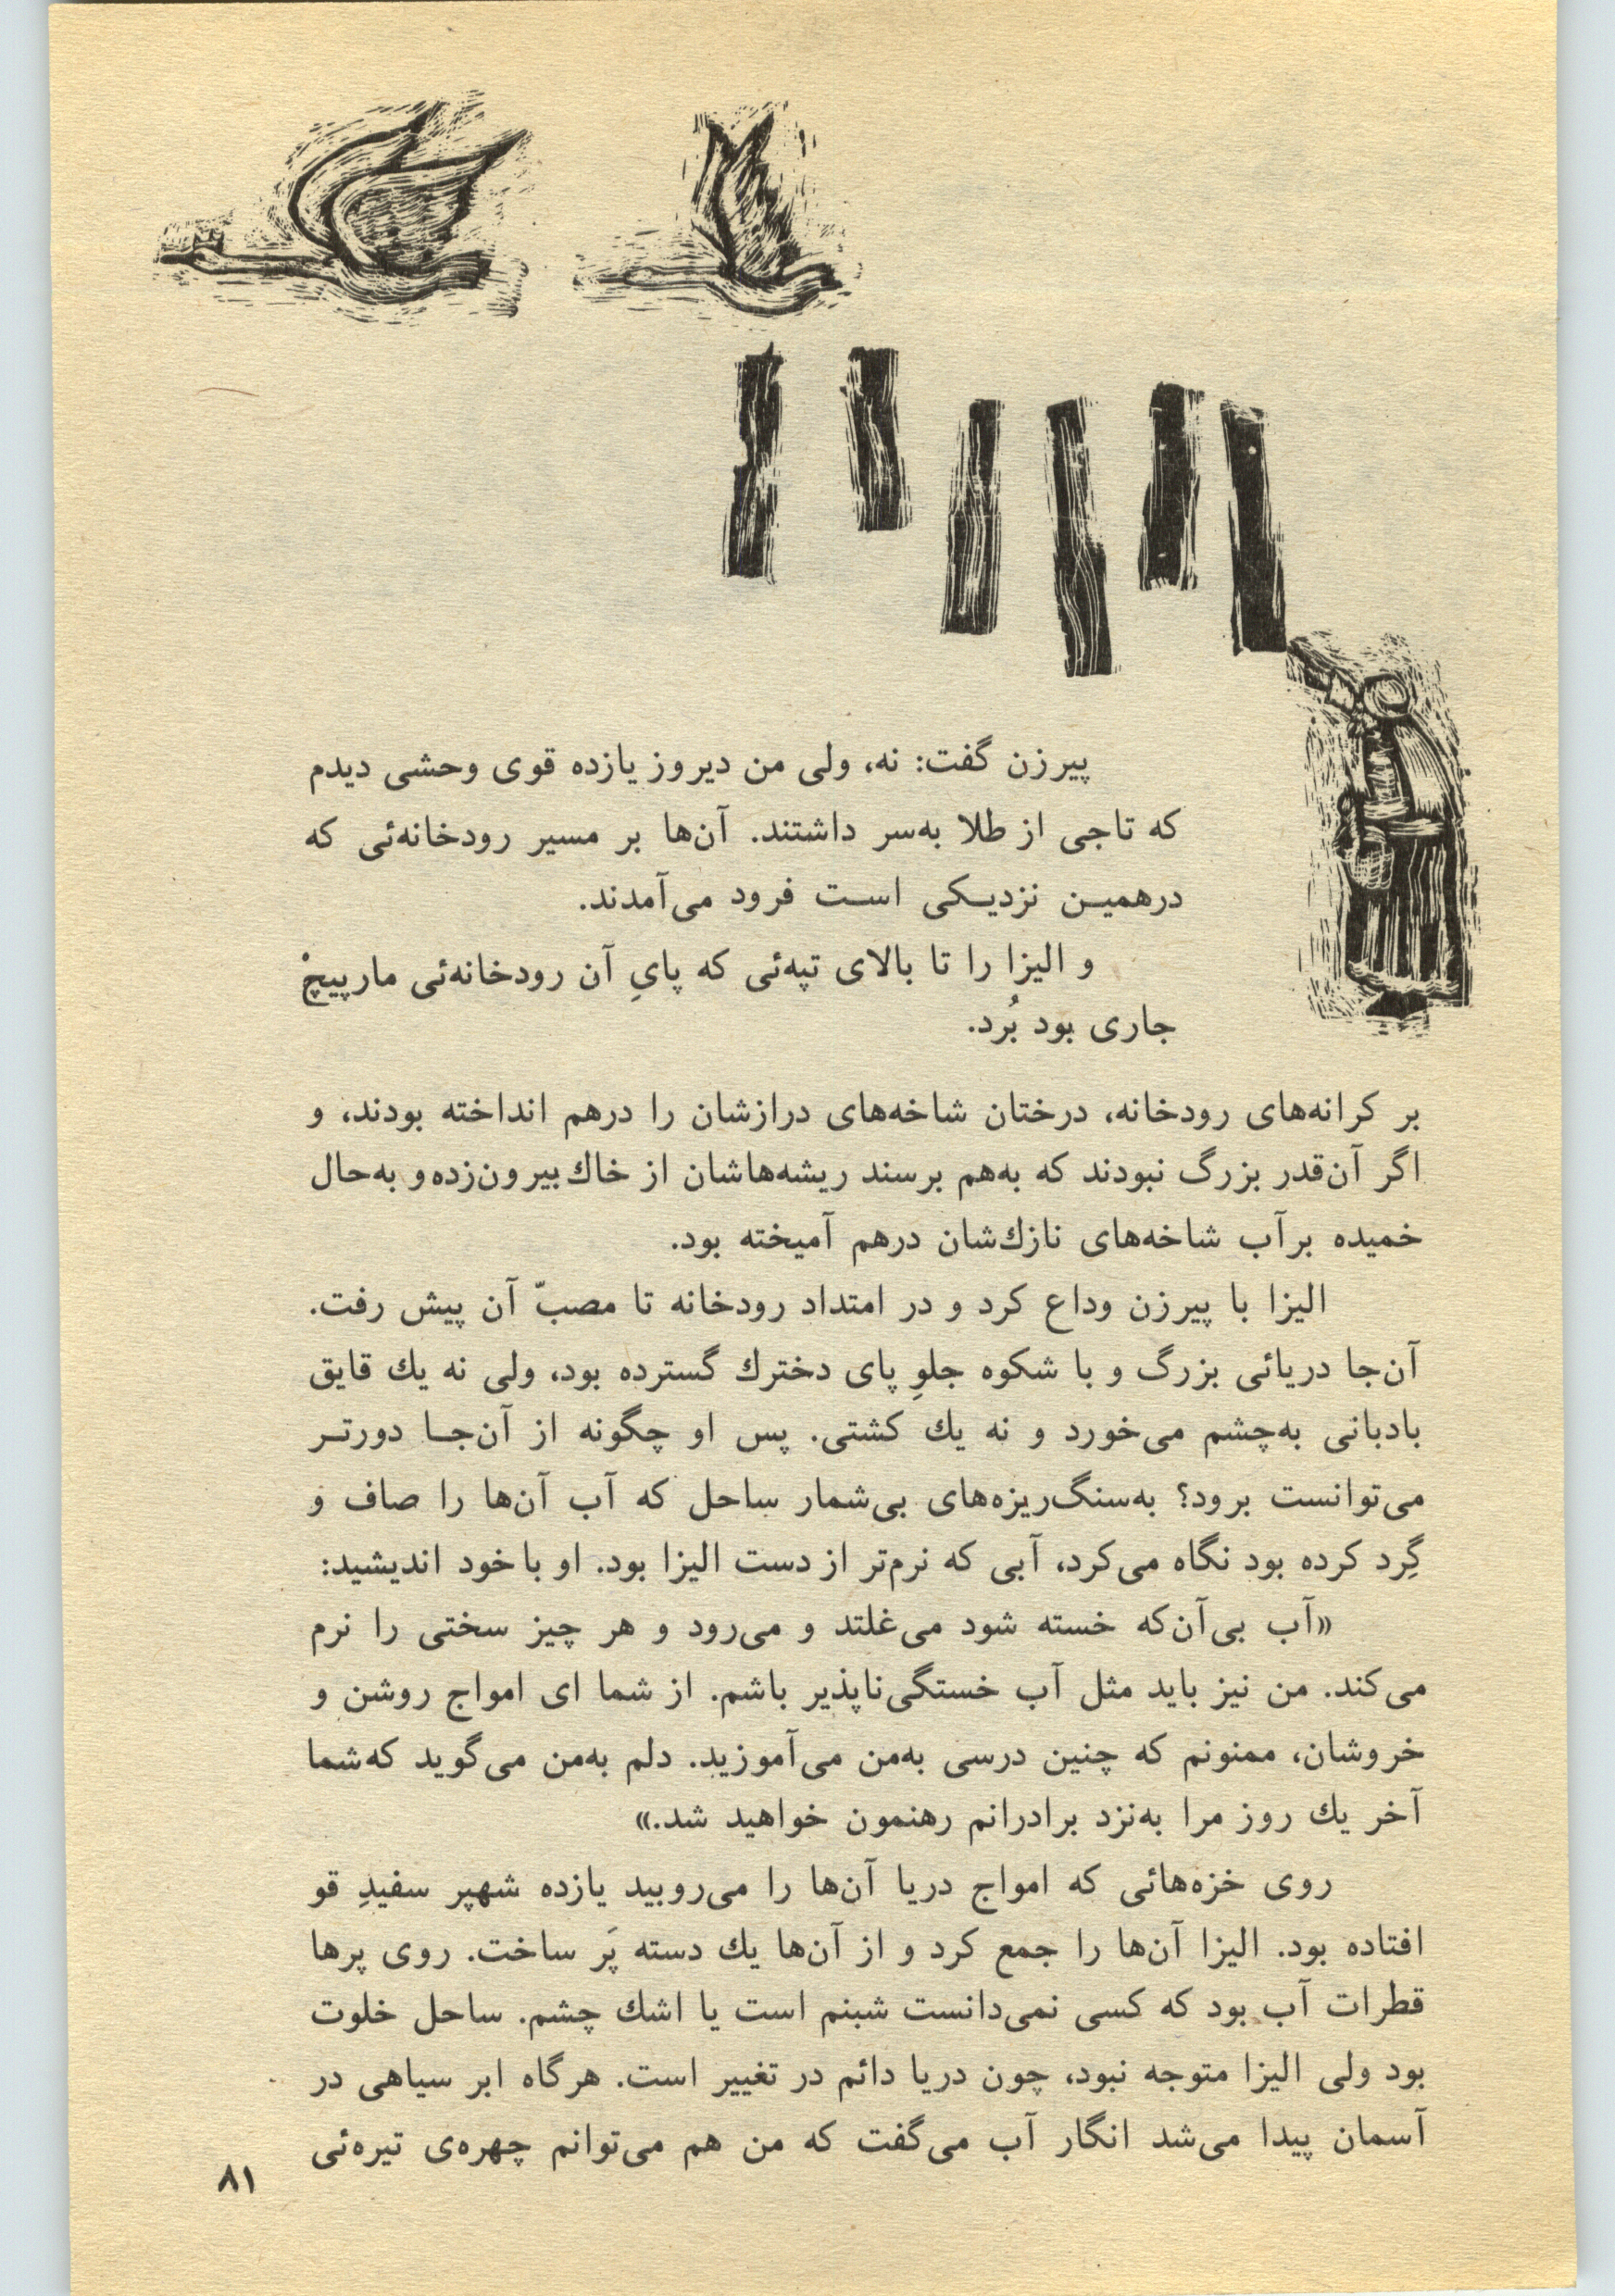 پیرزن گفت: نه، ولی من دیروز یازده قوی وحشی دیدم
که تاجی از طلا به‌سر داشتند. آن‌ها بر مسیر رودخانه‌ئی که
درهمیـن نزدیـکی اسـت فرود می‌آمدند.
و الیزا را تا بالای تپه‌ئی که پایِ آن رودخانه‌ئی مارپیچْ
جاری بود بُرد.
بر کرانه‌های رودخانه، درختان شاخه‌های درازشان را درهم انداخته بودند، و
اگر آن‌قدر بزرگ نبودند که به‌هم برسند ریشه‌هاشان از خاك بیرون‌زده و به‌حال
خمیده برآب شاخه‌های نازك‌شان درهم آمیخته بود.
الیزا با پیرزن وداع کرد و در امتداد رودخانه تا مصبّ آن پیش رفت.
آن‌جا دریائی بزرگ و با شکوه جلوِ پای دخترك گسترده بود، ولی نه یك قایق
بادبانی به‌چشم می‌خورد و نه یك کشتی. پس او چگونه از آن‌جـا دورتـر
می‌توانست برود؟ به‌سنگ‌ریزه‌های بی‌شمار ساحل که آب آن‌ها را صاف و
گِرد کرده بود نگاه می‌کرد، آبی که نرم‌تر از دست الیزا بود. او با خود اندیشید:
«آب بی‌آن‌که خسته شود می‌غلتد و می‌رود و هر چیز سختی را نرم
می‌کند. من نیز باید مثل آب خستگی‌ناپذیر باشم. از شما ای امواج روشن و
خروشان، ممنونم که چنین درسی به‌من می‌آموزید. دلم به‌من می‌گوید که‌شما
آخر یك روز مرا به‌نزد برادرانم رهنمون خواهید شد.»
روی خزه‌هائی که امواج دریا آن‌ها را می‌روبید یازده شهپر سفیدِ قو
افتاده بود. الیزا آن‌ها را جمع کرد و از آن‌ها یك دسته پَر ساخت. روی پرها
قطرات آب بود که کسی نمی‌دانست شبنم است یا اشك چشم. ساحل خلوت
بود ولی الیزا متوجه نبود، چون دریا دائم در تغییر است. هرگاه ابر سیاهی در
آسمان پیدا می‌شد انگار آب می‌گفت که من هم می‌توانم چهره‌ی تیره‌ئی
۸۱